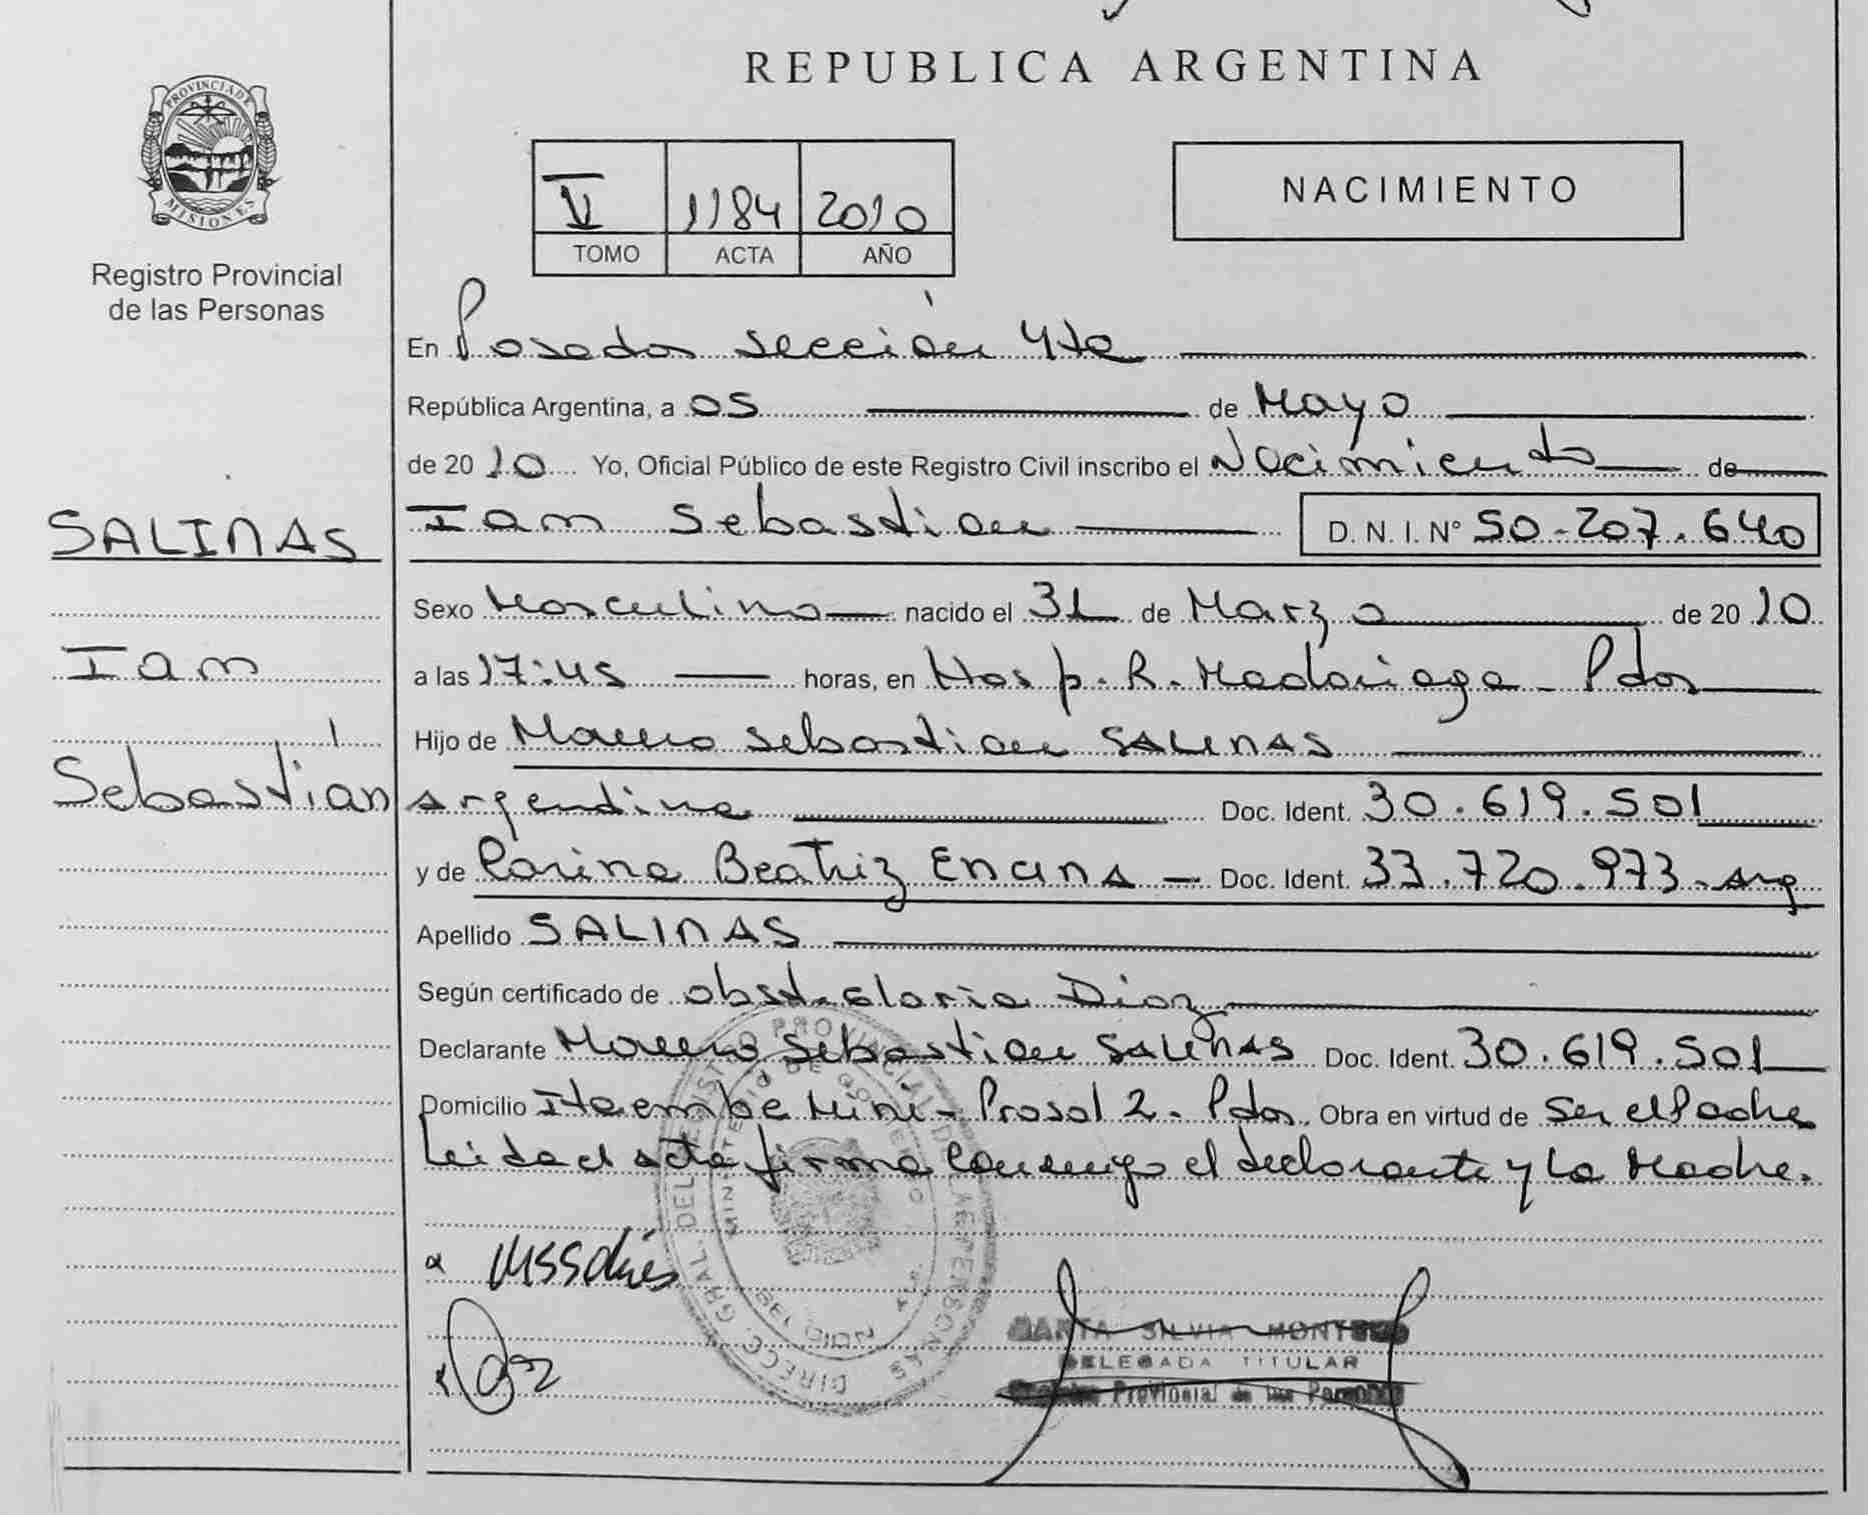 REPUBLICA ARGENTINA
PROVINCIA DE
MISIONES
Registro Provincial
de las Personas
V 1184 2010
TOMO ACTA AÑO
NACIMIENTO
En Posadas sección 4ta
República Argentina, a 05 de Mayo
de 2010 Yo, Oficial Público de este Registro Civil inscribo el Nacimiento de
Iam Sebastian D. N. I. N° 50-207.640
SALINAS
Iam
Sebastián
Sexo Masculino nacido el 31 de Marzo de 2010
a las 17:45 horas, en Hosp. R. Madariaga - Pdas
Hijo de Mauro Sebastian SALINAS
Argentina Doc. Ident. 30.619.501
y de Carina Beatriz Encina - Doc. Ident. 33.720.973-Arg
Apellido SALINAS
Según certificado de obst. Gloria Diaz
Declarante Mauro Sebastian SALINAS Doc. Ident. 30.619.501
Domicilio Itaembe Mini - Prosol 2. Pdas. Obra en virtud de ser el Padre
Leida el acta firma conmigo el declarante y la Madre.
DIRECC. GRAL. DEL REGISTRO PROVINCIAL DE LAS PERSONAS
MINISTERIO DE GOBIERNO
MARTA SILVIA
DELEGADA TITULAR
Registro Provincial de las Personas